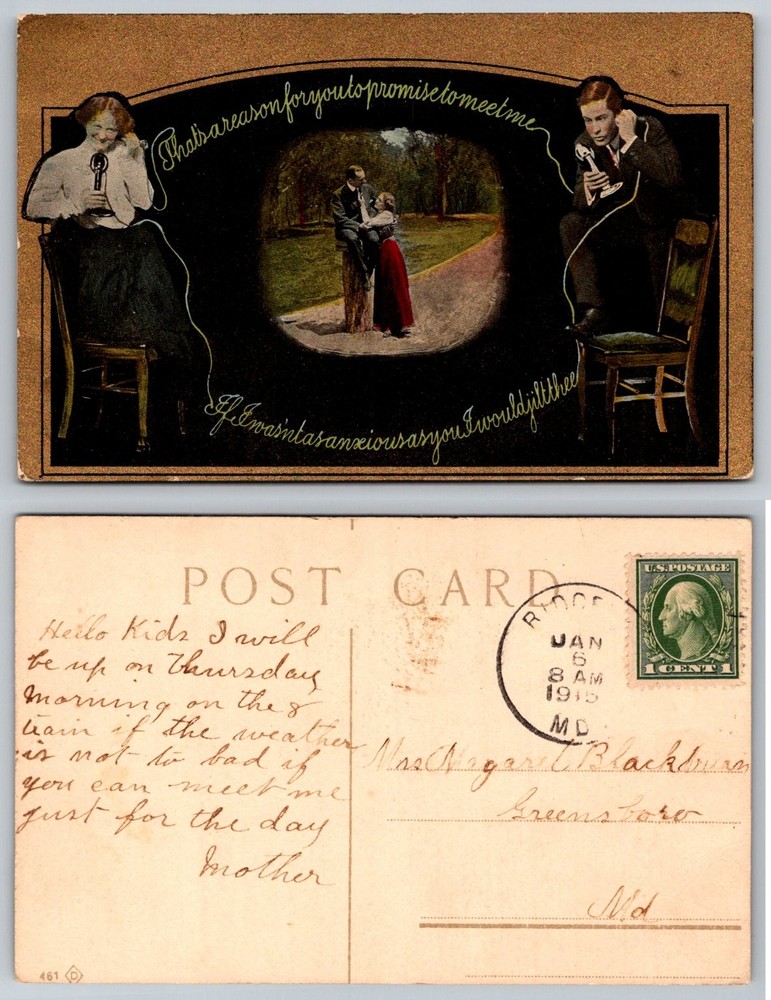 That's a reason for you to promise to meet me
If I wasn't as anxious as you I would jilt thee
POST CARD
Hello Kids I will
be up on Thursday
Morning on the 8
train if the weather
is not to bad if
you can meet me
just for the day
Mother
461 D
JAN
6
8 AM
1915
MD
U.S. POSTAGE
1 CENT 1
Mrs Margaret Blackburn
Greensboro
Md